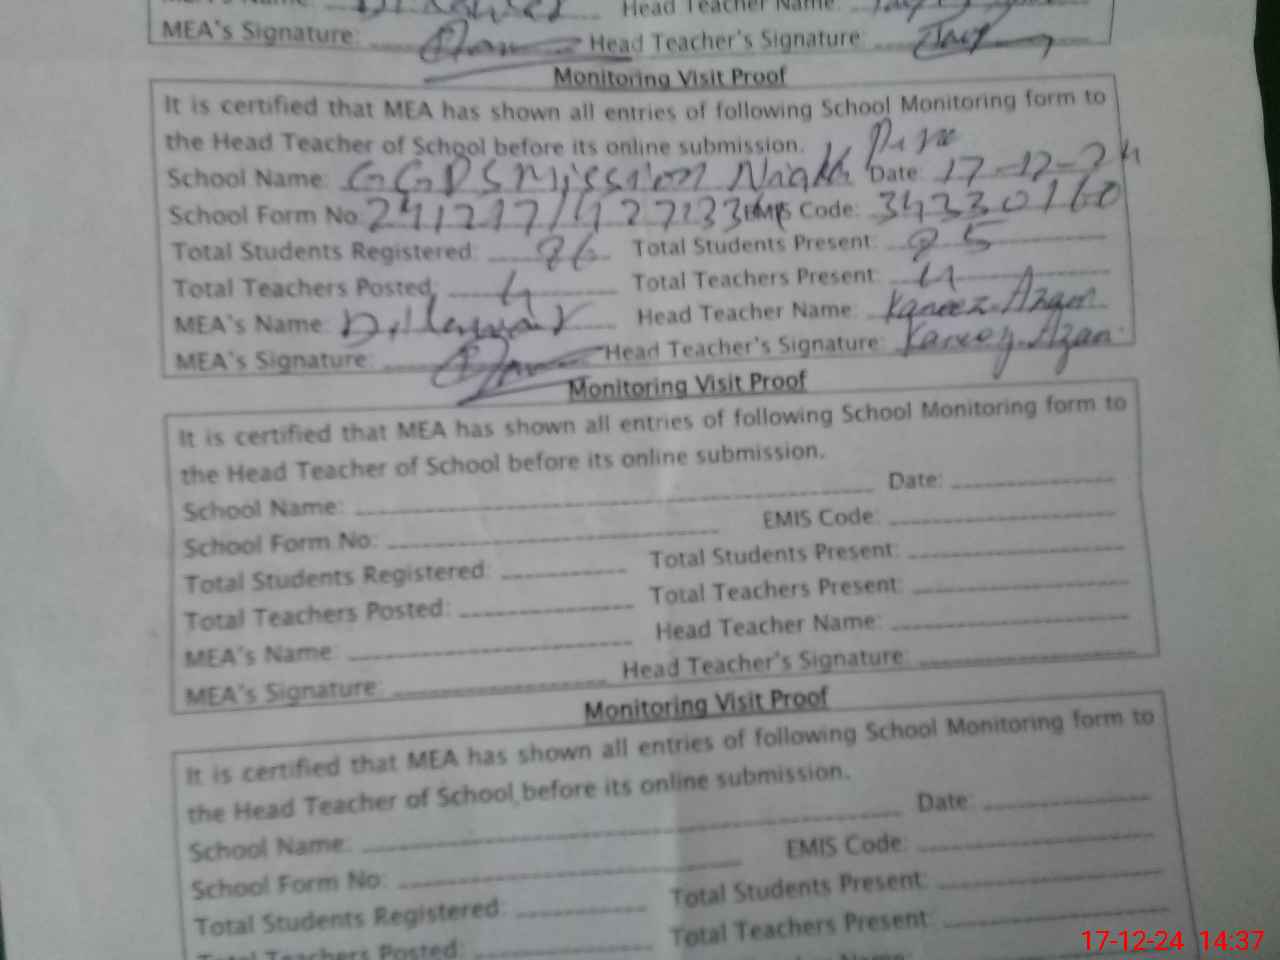 Head Teacher Name:
MEA's Signature: Head Teacher's Signature:
Monitoring Visit Proof
It is certified that MEA has shown all entries of following School Monitoring form to
the Head Teacher of School before its online submission.
School Name: GGPS Mission Nigah Date: 17-12-24
School Form No: EMIS Code: 34330160
Total Students Registered: 86 Total Students Present: 85
Total Teachers Posted: 4 Total Teachers Present: 4
MEA's Name: Dilawar Head Teacher Name: Kaneez Azam
MEA's Signature: Head Teacher's Signature: Kaneez Azam
Monitoring Visit Proof
It is certified that MEA has shown all entries of following School Monitoring form to
the Head Teacher of School before its online submission.
School Name: Date:
School Form No: EMIS Code:
Total Students Registered: Total Students Present:
Total Teachers Posted: Total Teachers Present:
MEA's Name: Head Teacher Name:
MEA's Signature: Head Teacher's Signature:
Monitoring Visit Proof
It is certified that MEA has shown all entries of following School Monitoring form to
the Head Teacher of School before its online submission.
School Name: Date:
School Form No: EMIS Code:
Total Students Registered: Total Students Present:
Teachers Posted: Total Teachers Present:
17-12-24 14:37